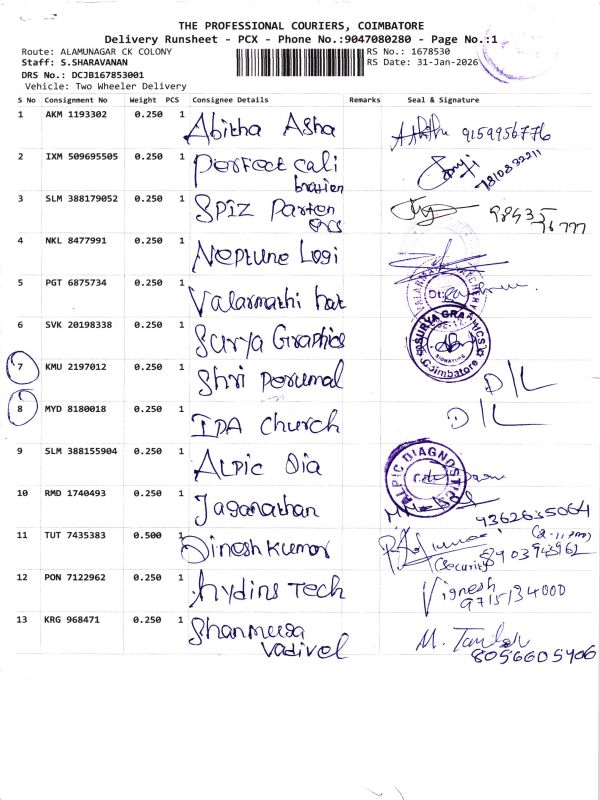 THE PROFESSIONAL COURIERS, COIMBATORE
Delivery Runsheet - PCX - Phone No.:9047080280 - Page No.:1
Route: ALAMUNAGAR CK COLONY
RS No.: 1678530
Staff: S.SHARAVANAN
RS Date: 31-Jan-2026
DRS No.: DCJB167853001
Vehicle: Two Wheeler Delivery
S No Consignment No Weight PCS Consignee Details Remarks Seal & Signature
1 AKM 1193302 0.250 1 Abitha Asha 9159956776
2 IXM 509695505 0.250 1 Perfect Cali
bration 7810832211
3 SLM 388179052 0.250 1 SPIZ Parton
4 NKL 8477991 0.250 1 Neptune Logi
5 PGT 6875734 0.250 1 Valarmathi hat
6 SVK 20198338 0.250 1 Surya Graphics SURYA GRAPHICS SIGNATURE Coimbatore
7 KMU 2197012 0.250 1 Shri Perumal D/L
8 MYD 8180018 0.250 1 IPA Church D/L
9 SLM 388155904 0.250 1 ALPIC Dia ALPIC DIAGNOSTICS
10 RMD 1740493 0.250 1 Jaganathan 9362635064
11 TUT 7435383 0.500 1 Dinesh Kumar 8903943962
(Security)
12 PON 7122962 0.250 1 hydins Tech Vignesh
9715134000
13 KRG 968471 0.250 1 Shanmuga
Vadivel 8056605906